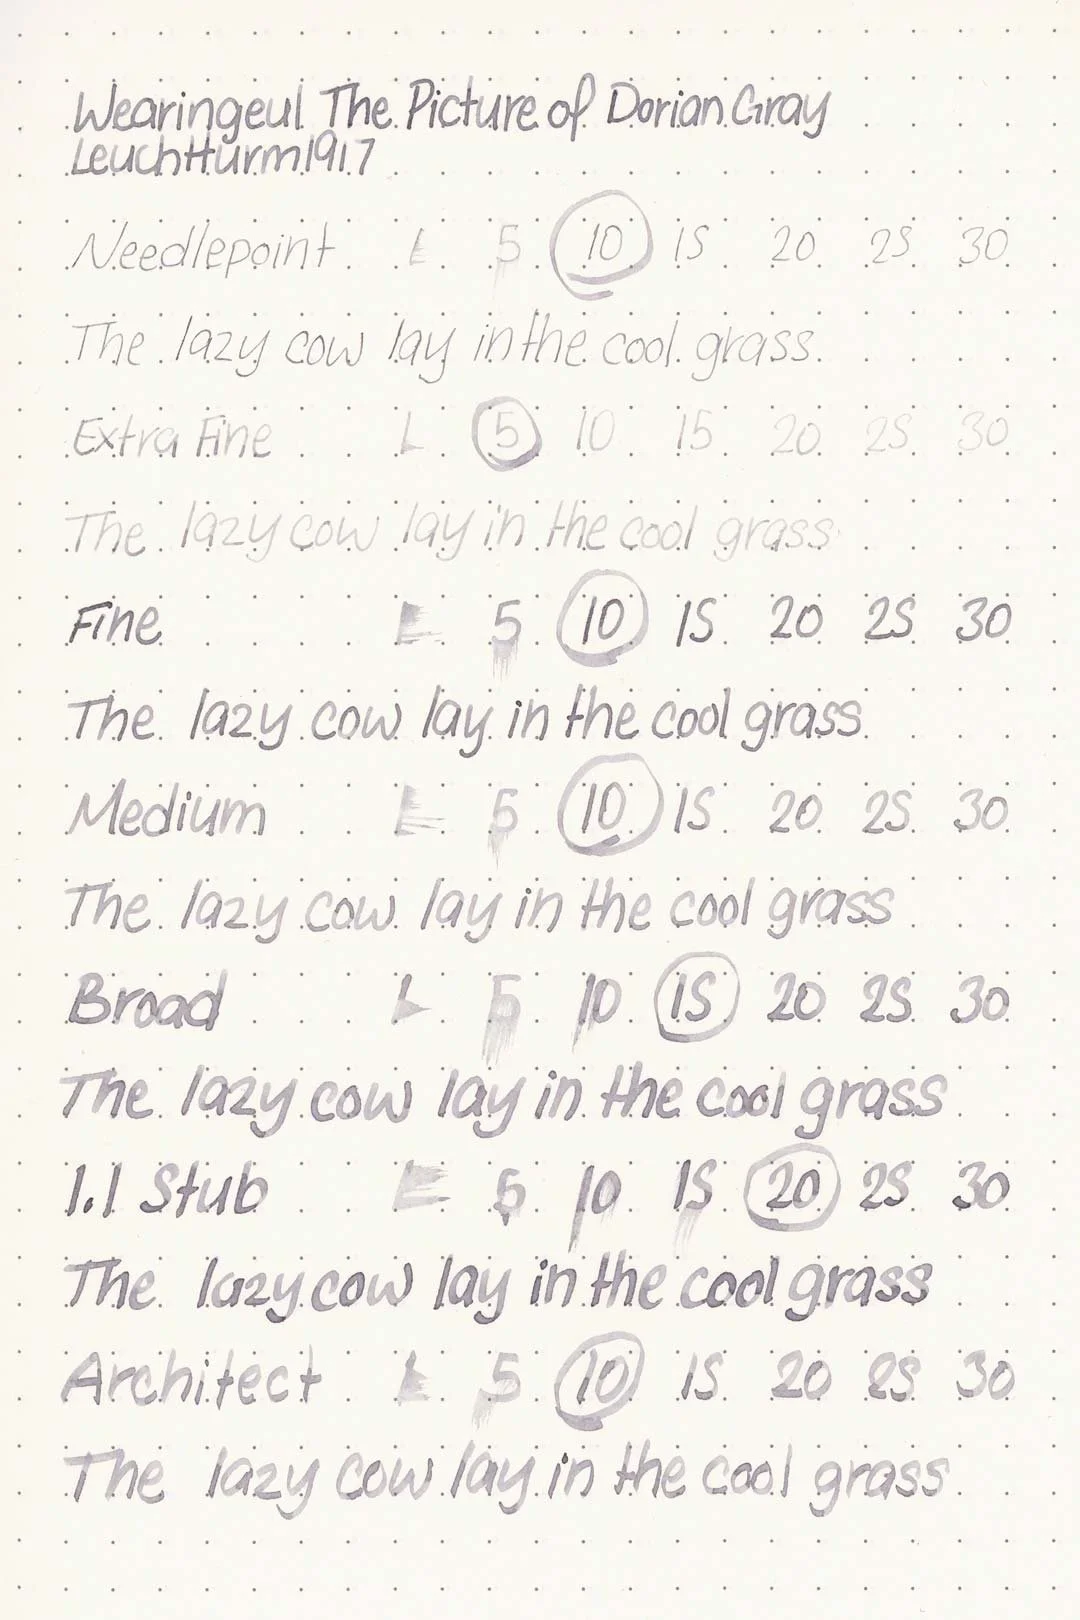 Wearingeul The Picture of Dorian Gray
Leuchtturm1917
Needlepoint L 5 10 15 20 25 30
The lazy cow lay in the cool grass
Extra Fine L 5 10 15 20 25 30
The lazy cow lay in the cool grass
Fine L 5 10 15 20 25 30
The lazy cow lay in the cool grass
Medium L 5 10 15 20 25 30
The lazy cow lay in the cool grass
Broad L 5 10 15 20 25 30
The lazy cow lay in the cool grass
1.1 Stub L 5 10 15 20 25 30
The lazy cow lay in the cool grass
Architect L 5 10 15 20 25 30
The lazy cow lay in the cool grass